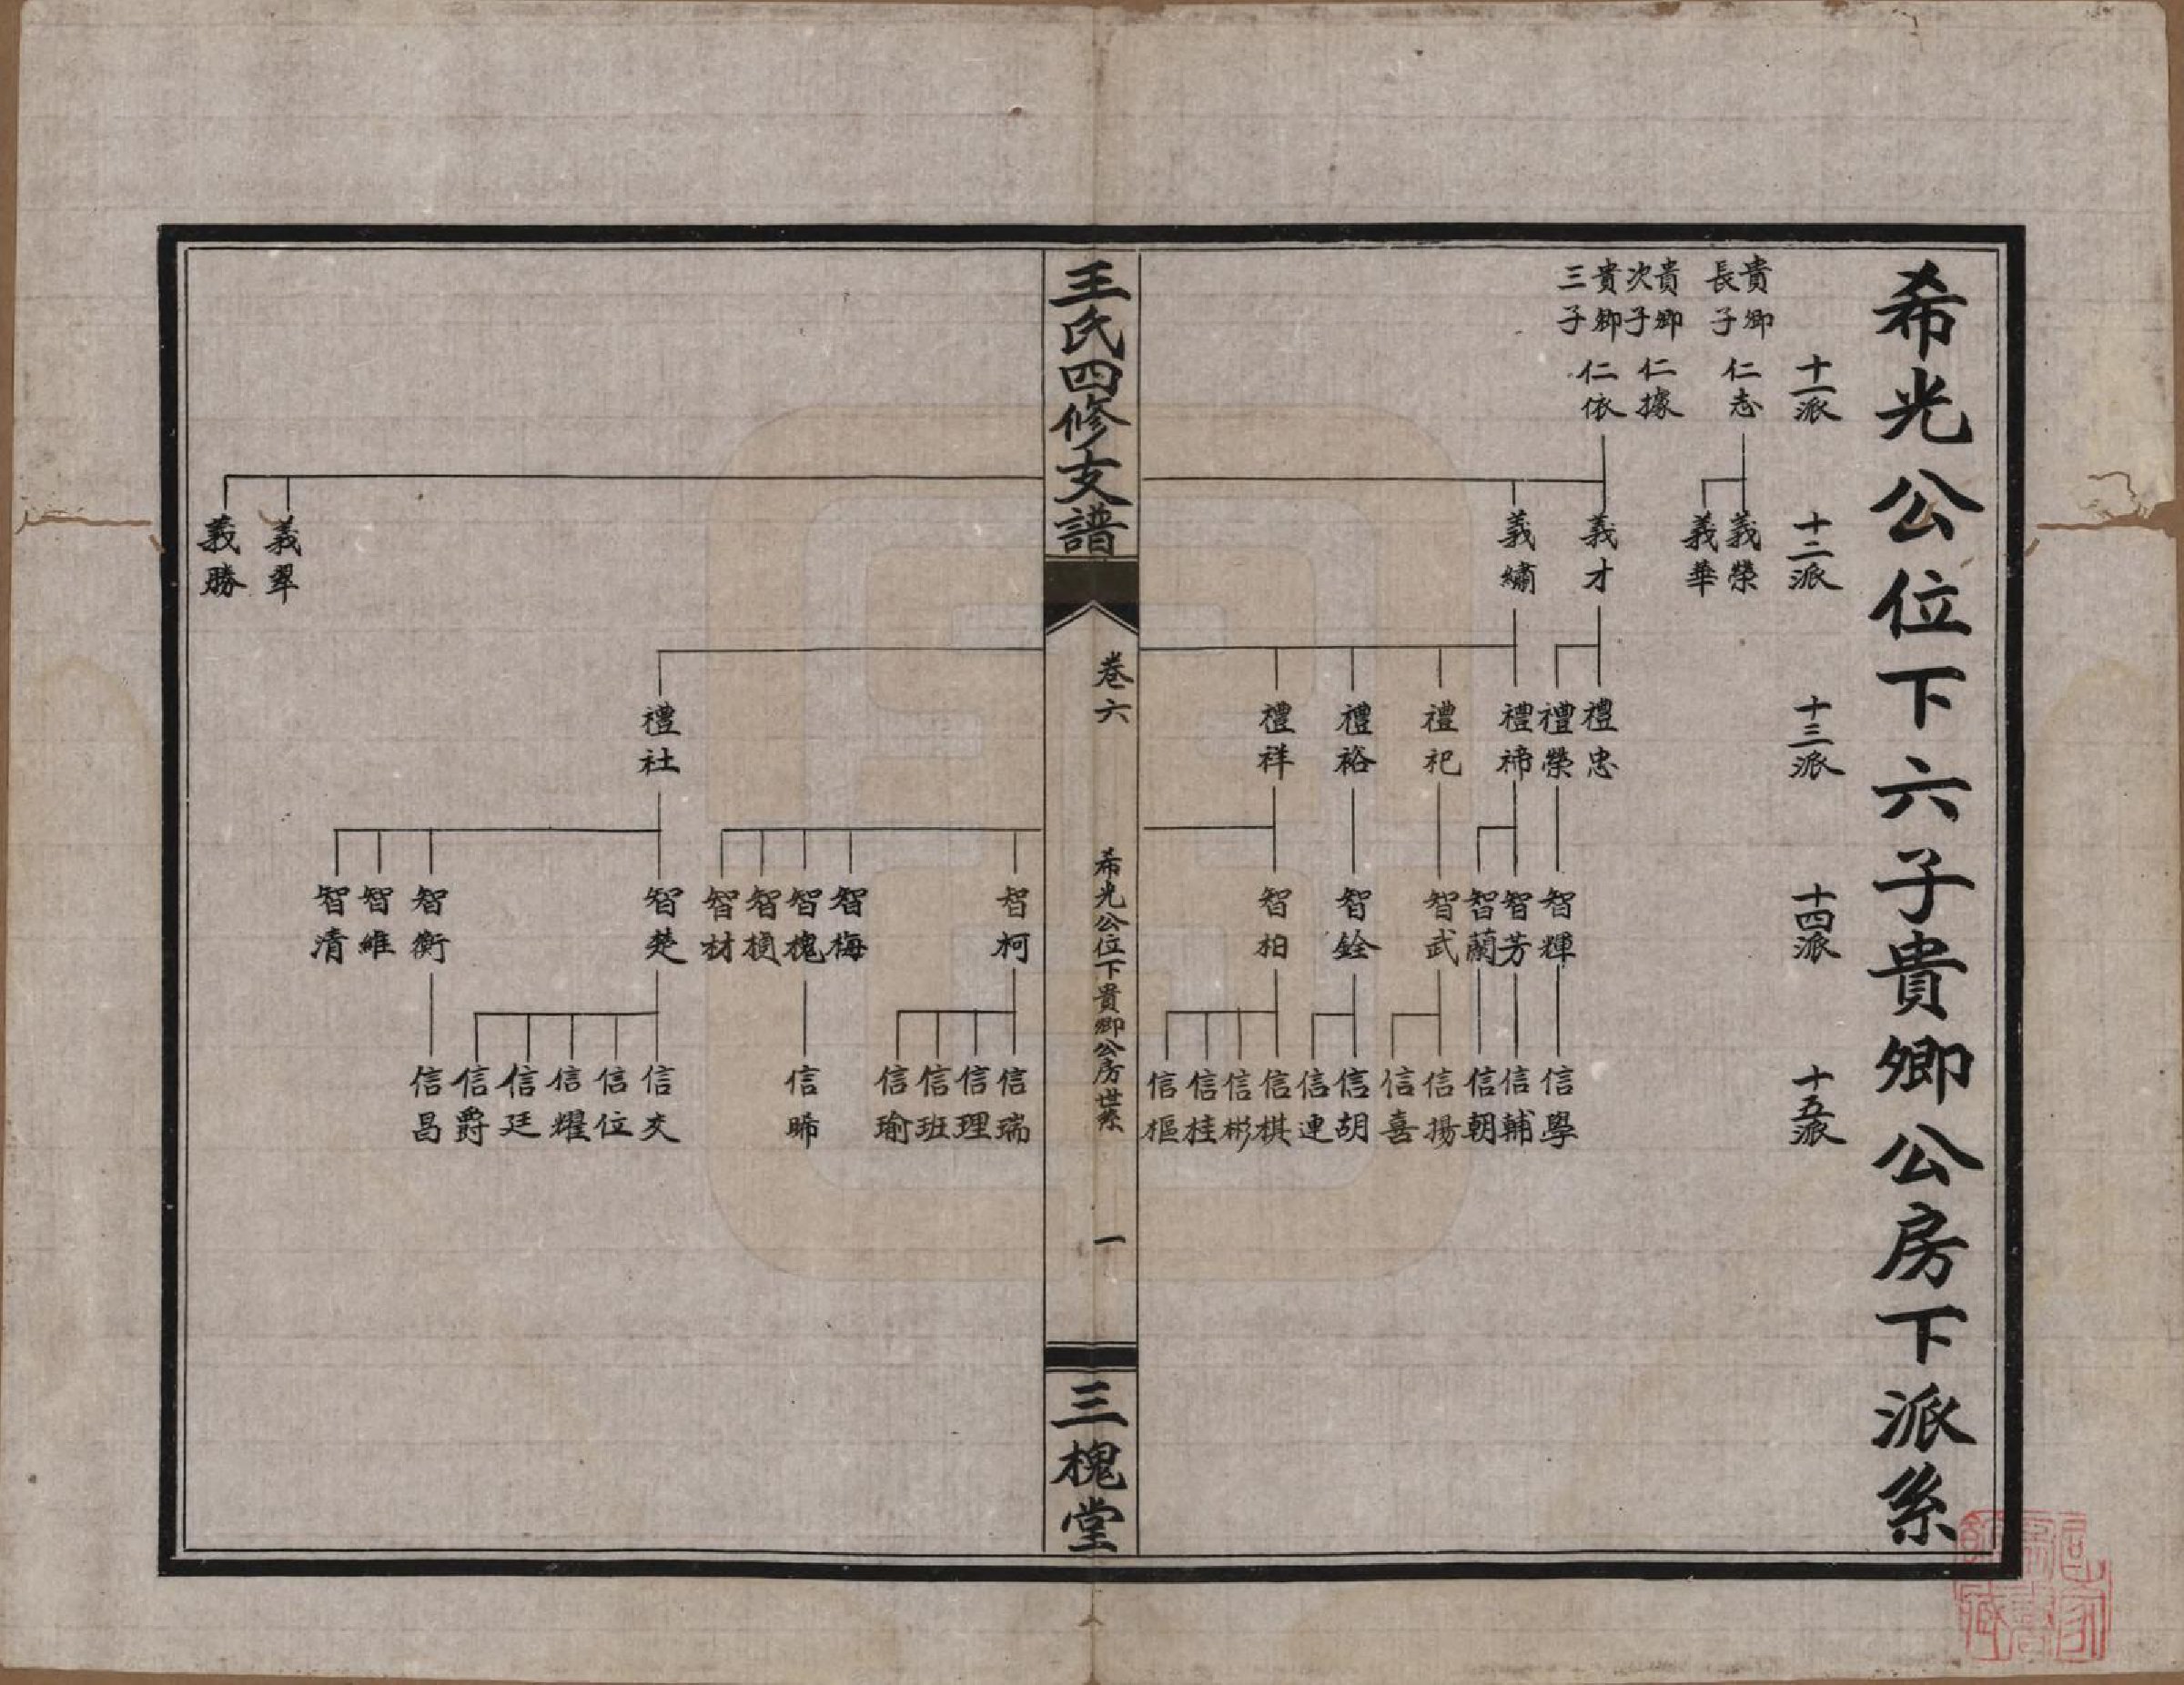 希光公位下六子貴卿公房下派系
十一派
十二派
十三派
十四派
十五派
貴卿長子 仁志
貴卿次子 仁據
貴卿三子 仁依
義榮
義華
義才
義繡
禮忠
禮榮
禮禘
禮祀
禮裕
禮祥
智輝
智芳
智蘭
智武
智銓
智柏
信學
信輔
信朝
信揚
信喜
信胡
信連
信棋
信彬
信桂
信樞
王氏四修支譜
卷六
希光公位下貴卿公房世系
一
三槐堂
義翠
義勝
禮社
智柯
智梅
智槐
智楨
智材
智楚
智衡
智維
智清
信瑞
信理
信班
信瑜
信晞
信文
信位
信耀
信廷
信爵
信昌